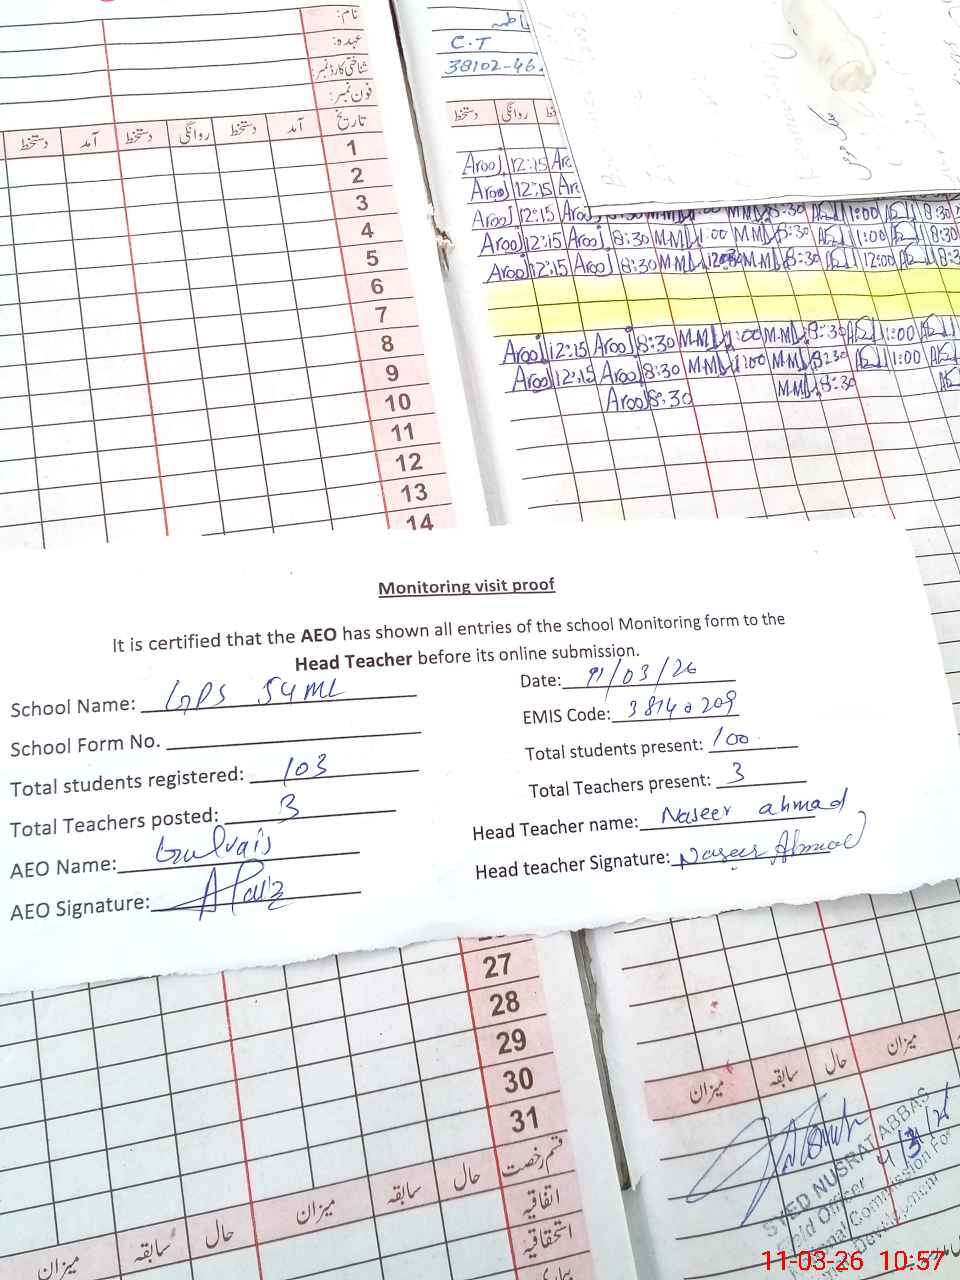 نام:
عہدہ:
شناختی کارڈ نمبر:
فون نمبر:
دستخط آمد دستخط روانگی دستخط آمد تاریخ
1
2
3
4
5
6
7
8
9
10
11
12
13
14
C.T
38102-46.
دستخط روانگی
Arooj 12:15 Aro
Arooj 12:15 Aro
Arooj 12:15 Arooj 8:30 1:00
Arooj 12:15 Arooj 8:30 M.M 1:00 M.M 8:30 1:00 8:30
Arooj 12:15 Arooj 8:30 M.M M.M 8:30 12:00 8:3
Arooj 12:15 Arooj 8:30 M.M 1:00 M.M 8:30 1:00
Arooj 12:15 Arooj 8:30 M.M 1:00 M.M 8:30 1:00
Arooj 8:30 M.M 8:30
Monitoring visit proof
It is certified that the AEO has shown all entries of the school Monitoring form to the
Head Teacher before its online submission.
School Name: GPS 54ML
School Form No.
Total students registered: 103
Total Teachers posted: 3
AEO Name: Gulraiz
AEO Signature:
Date: 11/03/26
EMIS Code: 38140209
Total students present: 100
Total Teachers present: 3
Head Teacher name: Naseer ahmad
Head teacher Signature: Naseer Ahmad
27
28
29
30
31
میزان سابقہ حال میزان سابقہ حال قسم رخصت
اتفاقیہ
استحقاقیہ
میزان سابقہ حال میزان
SYED NUSRAT ABBAS
Field Officer
National Commission For
Human Development
11-03-26 10:57